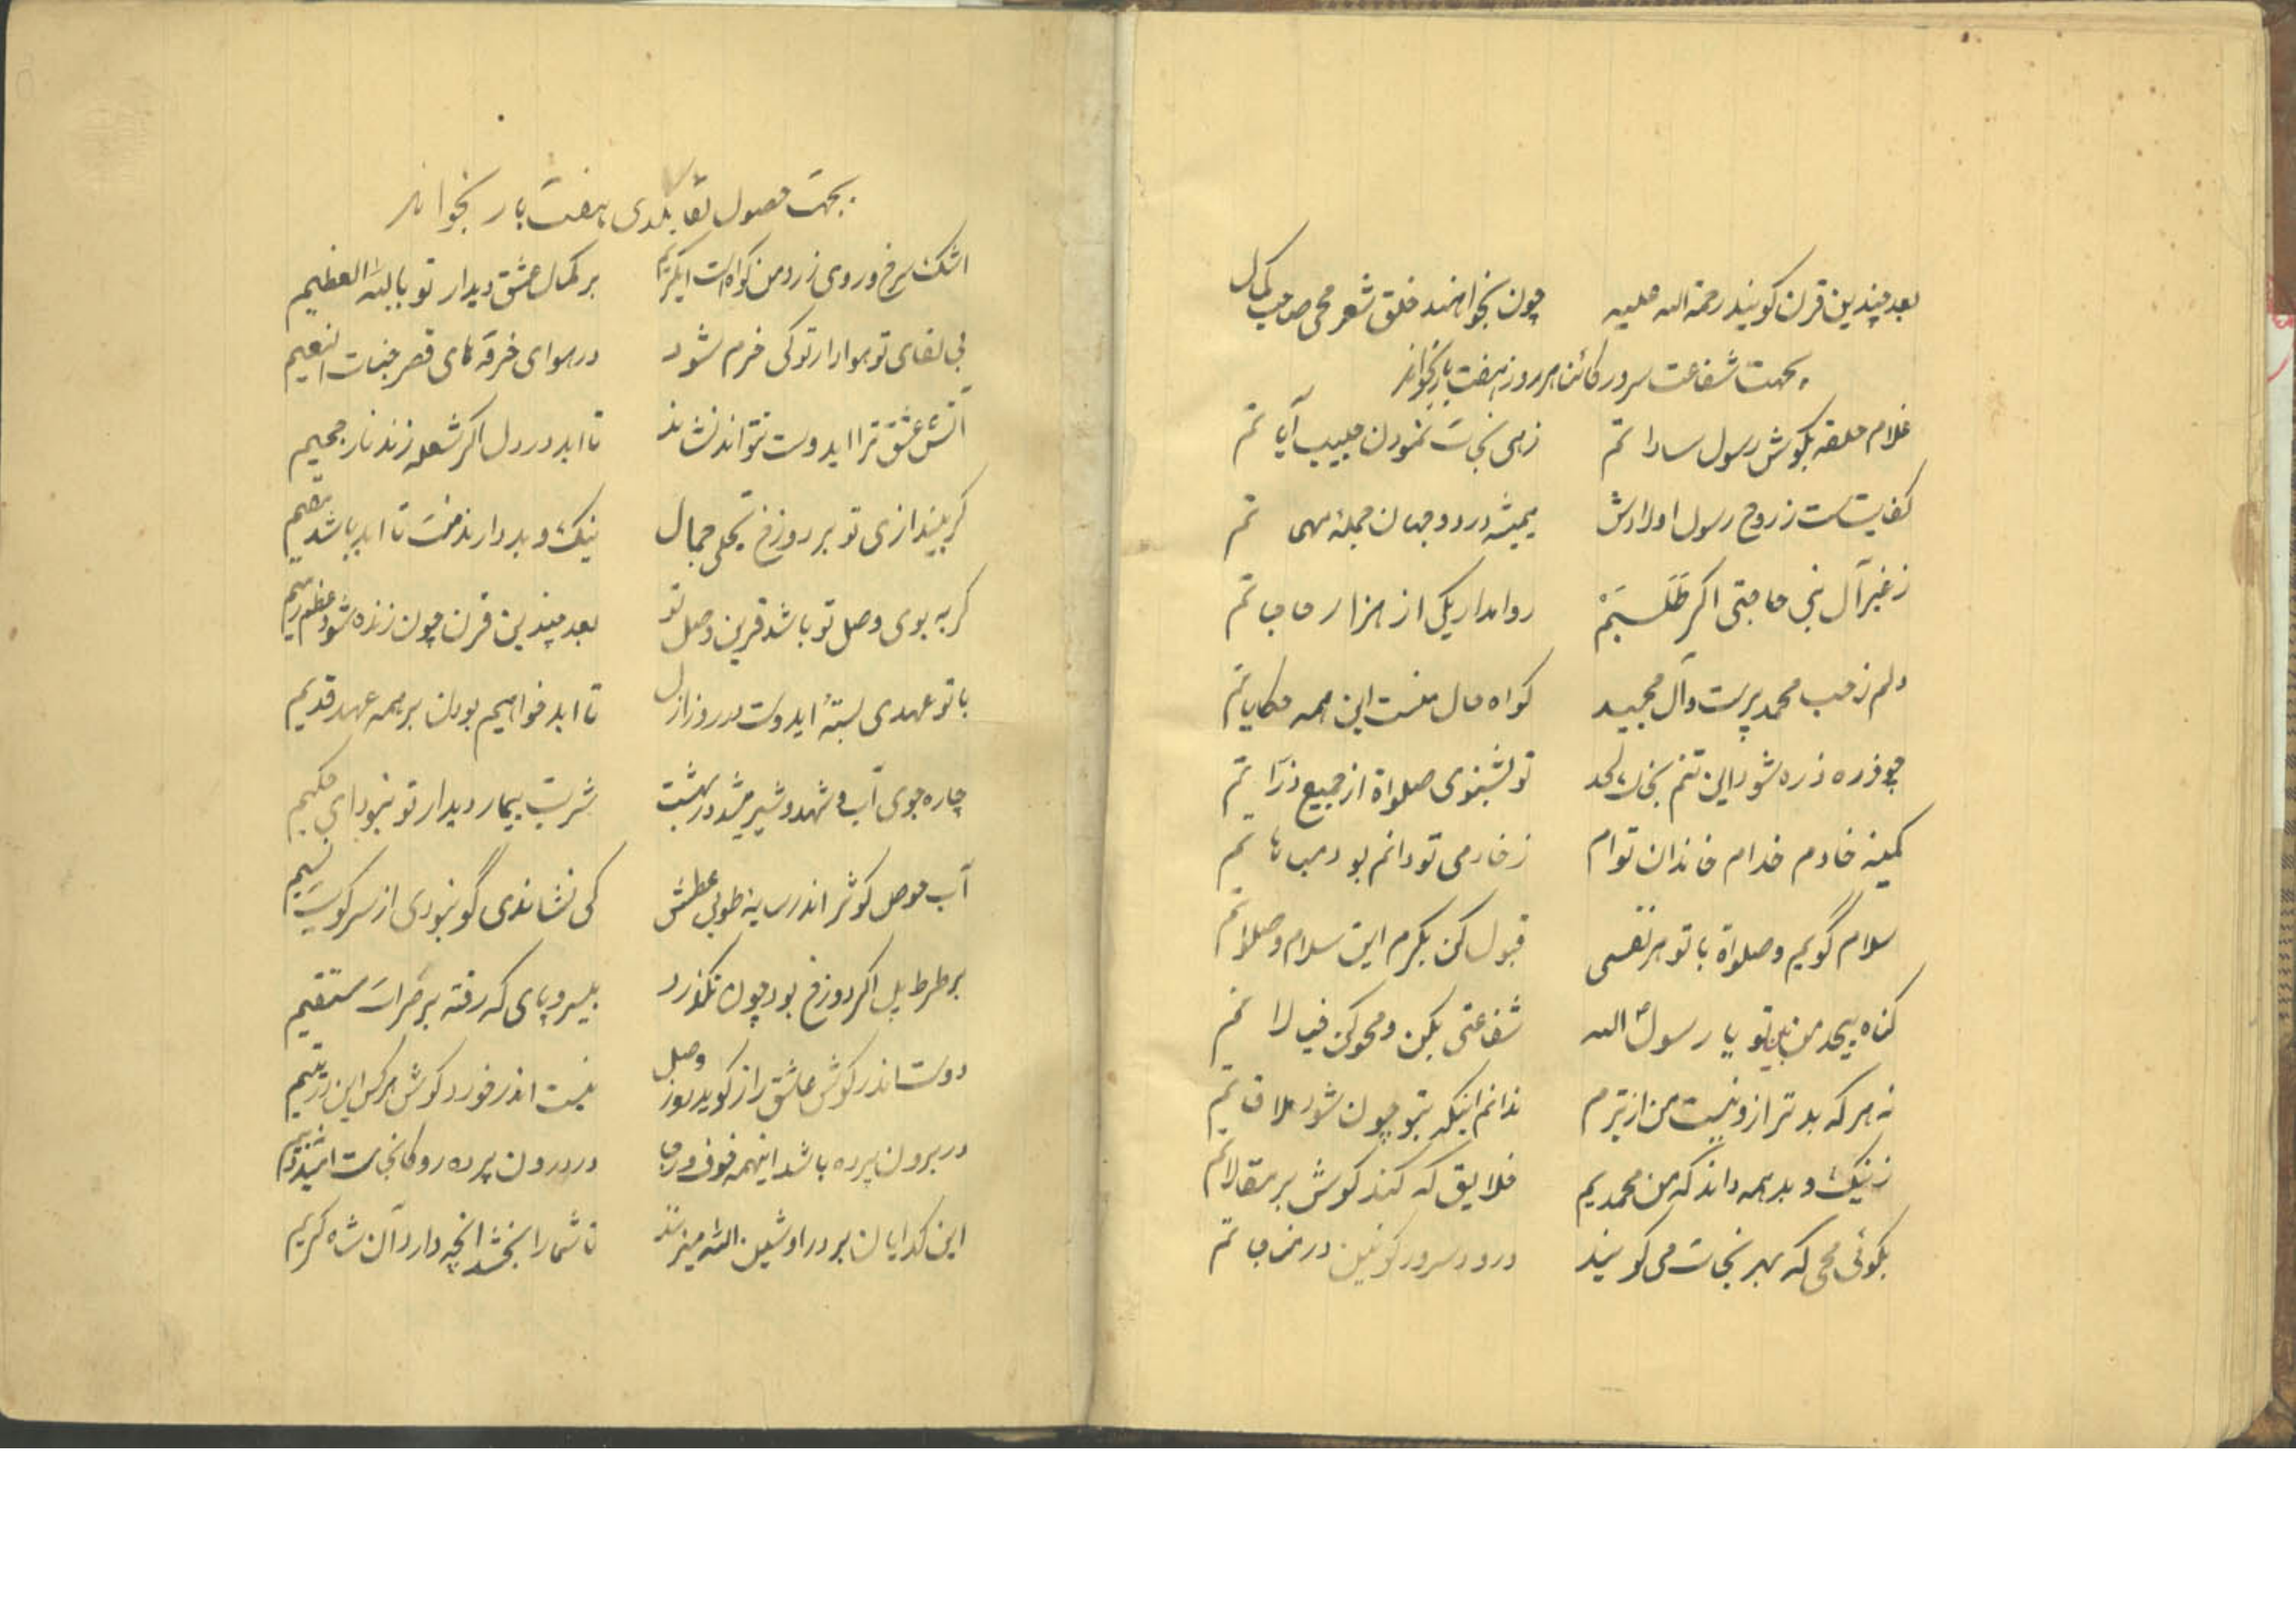 بعد چندین قرن کویند رحمة الله علیه چون بخوانند خلق شعر محی صاحب کمال
بجهت شفاعت سرور کائنات هر روز هفت بار بخواند
غلام حلقه بکوش رسول ساداتم زهی نجات نمودن حبیب آیاتم
کفایتست ز روح رسول اولادش همیشه در دو جهان جمله مهماتم
ز غیر آل نبی حاجتی اکر طلبم روا مدار یکی از هزار حاجاتم
دلم ز حب محمد پرست و آل مجید کواه حال منست این همه حکایاتم
چو ذره ذره شود این تنم بخاک لحد تو بشنوی صلواة از جمیع ذراتم
کمینه خادم خدام خاندان توام ز خادمی تو دائم بود مباهاتم
سلام گویم و صلواة با تو هر نفسی قبول کن بکرم این سلام و صلواتم
کناه بیحد من بین تو یا رسول الله شفاعتی بکن و محو کن خیالاتم
نه هر که بدتر ازو نیست من ازو بترم ندانم اینکه بتو چون شود ملاقاتم
ز نیک و بد همه دانند که من محمدیم خلایق که کند کوش بر مقالاتم
بکوئی محی که بهر نجات می کویند درود سرور کونین در مناجاتم
بجهت حصول لقا بلدی هفت بار بخواند
اشک سرخ و روی زرد من کواهست ایکریم بر کمال عشق دیدار تو بالله العظیم
بی لقای تو هوادار تو کی خرم شود در هوای خرقه های قصر جنات النعیم
آتش عشق ترا ایدوست نتواند نشاند تا ابد در دل اکر شعله زند نار جحیم
کر بیندازی تو بر دوزخ تجلی جمال نیک و بد دارند منت تا ابد باشد مقیم
کر به بوی وصل تو باشد قرین وصل تو بعد چندین قرن چون زنده شود عظم رمیم
با تو عهدی بسته ایدوست در روز ازل تا ابد خواهیم بودن بر همه عهد قدیم
چاره جوی آب و شهد و شیر میشد در بهشت شربت بیمار دیدار تو نبود ای حکیم
آب حوض کوثر اندر سایه طوبی عطش کی نشاندی گو نبودی از سر کویت نسیم
بر طرط پل اکر دوزخ بود چون نگذرد بیسر و پای که رفته بر صراط مستقیم
دوست اندر کوش عاشق راز کوید روز وصل نیست اندر خورد کوش هر کس این در یتیم
در برون پرده باشد اینهمه خوف و رجا در درون پرده رو کانجاست امید و بیم
این کدایان بر در او شیئن الله میزنند تا شما را بخشد انچه دارد آن شاه کریم